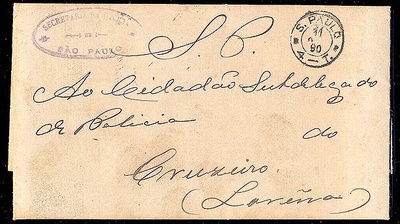 SECRETARIA DE
SÃO PAULO
S. PAULO
90
4 — T.
S. P.
Ao Cidadão Subdelegado
de Policia do
Cruzeiro.
(Lorena)